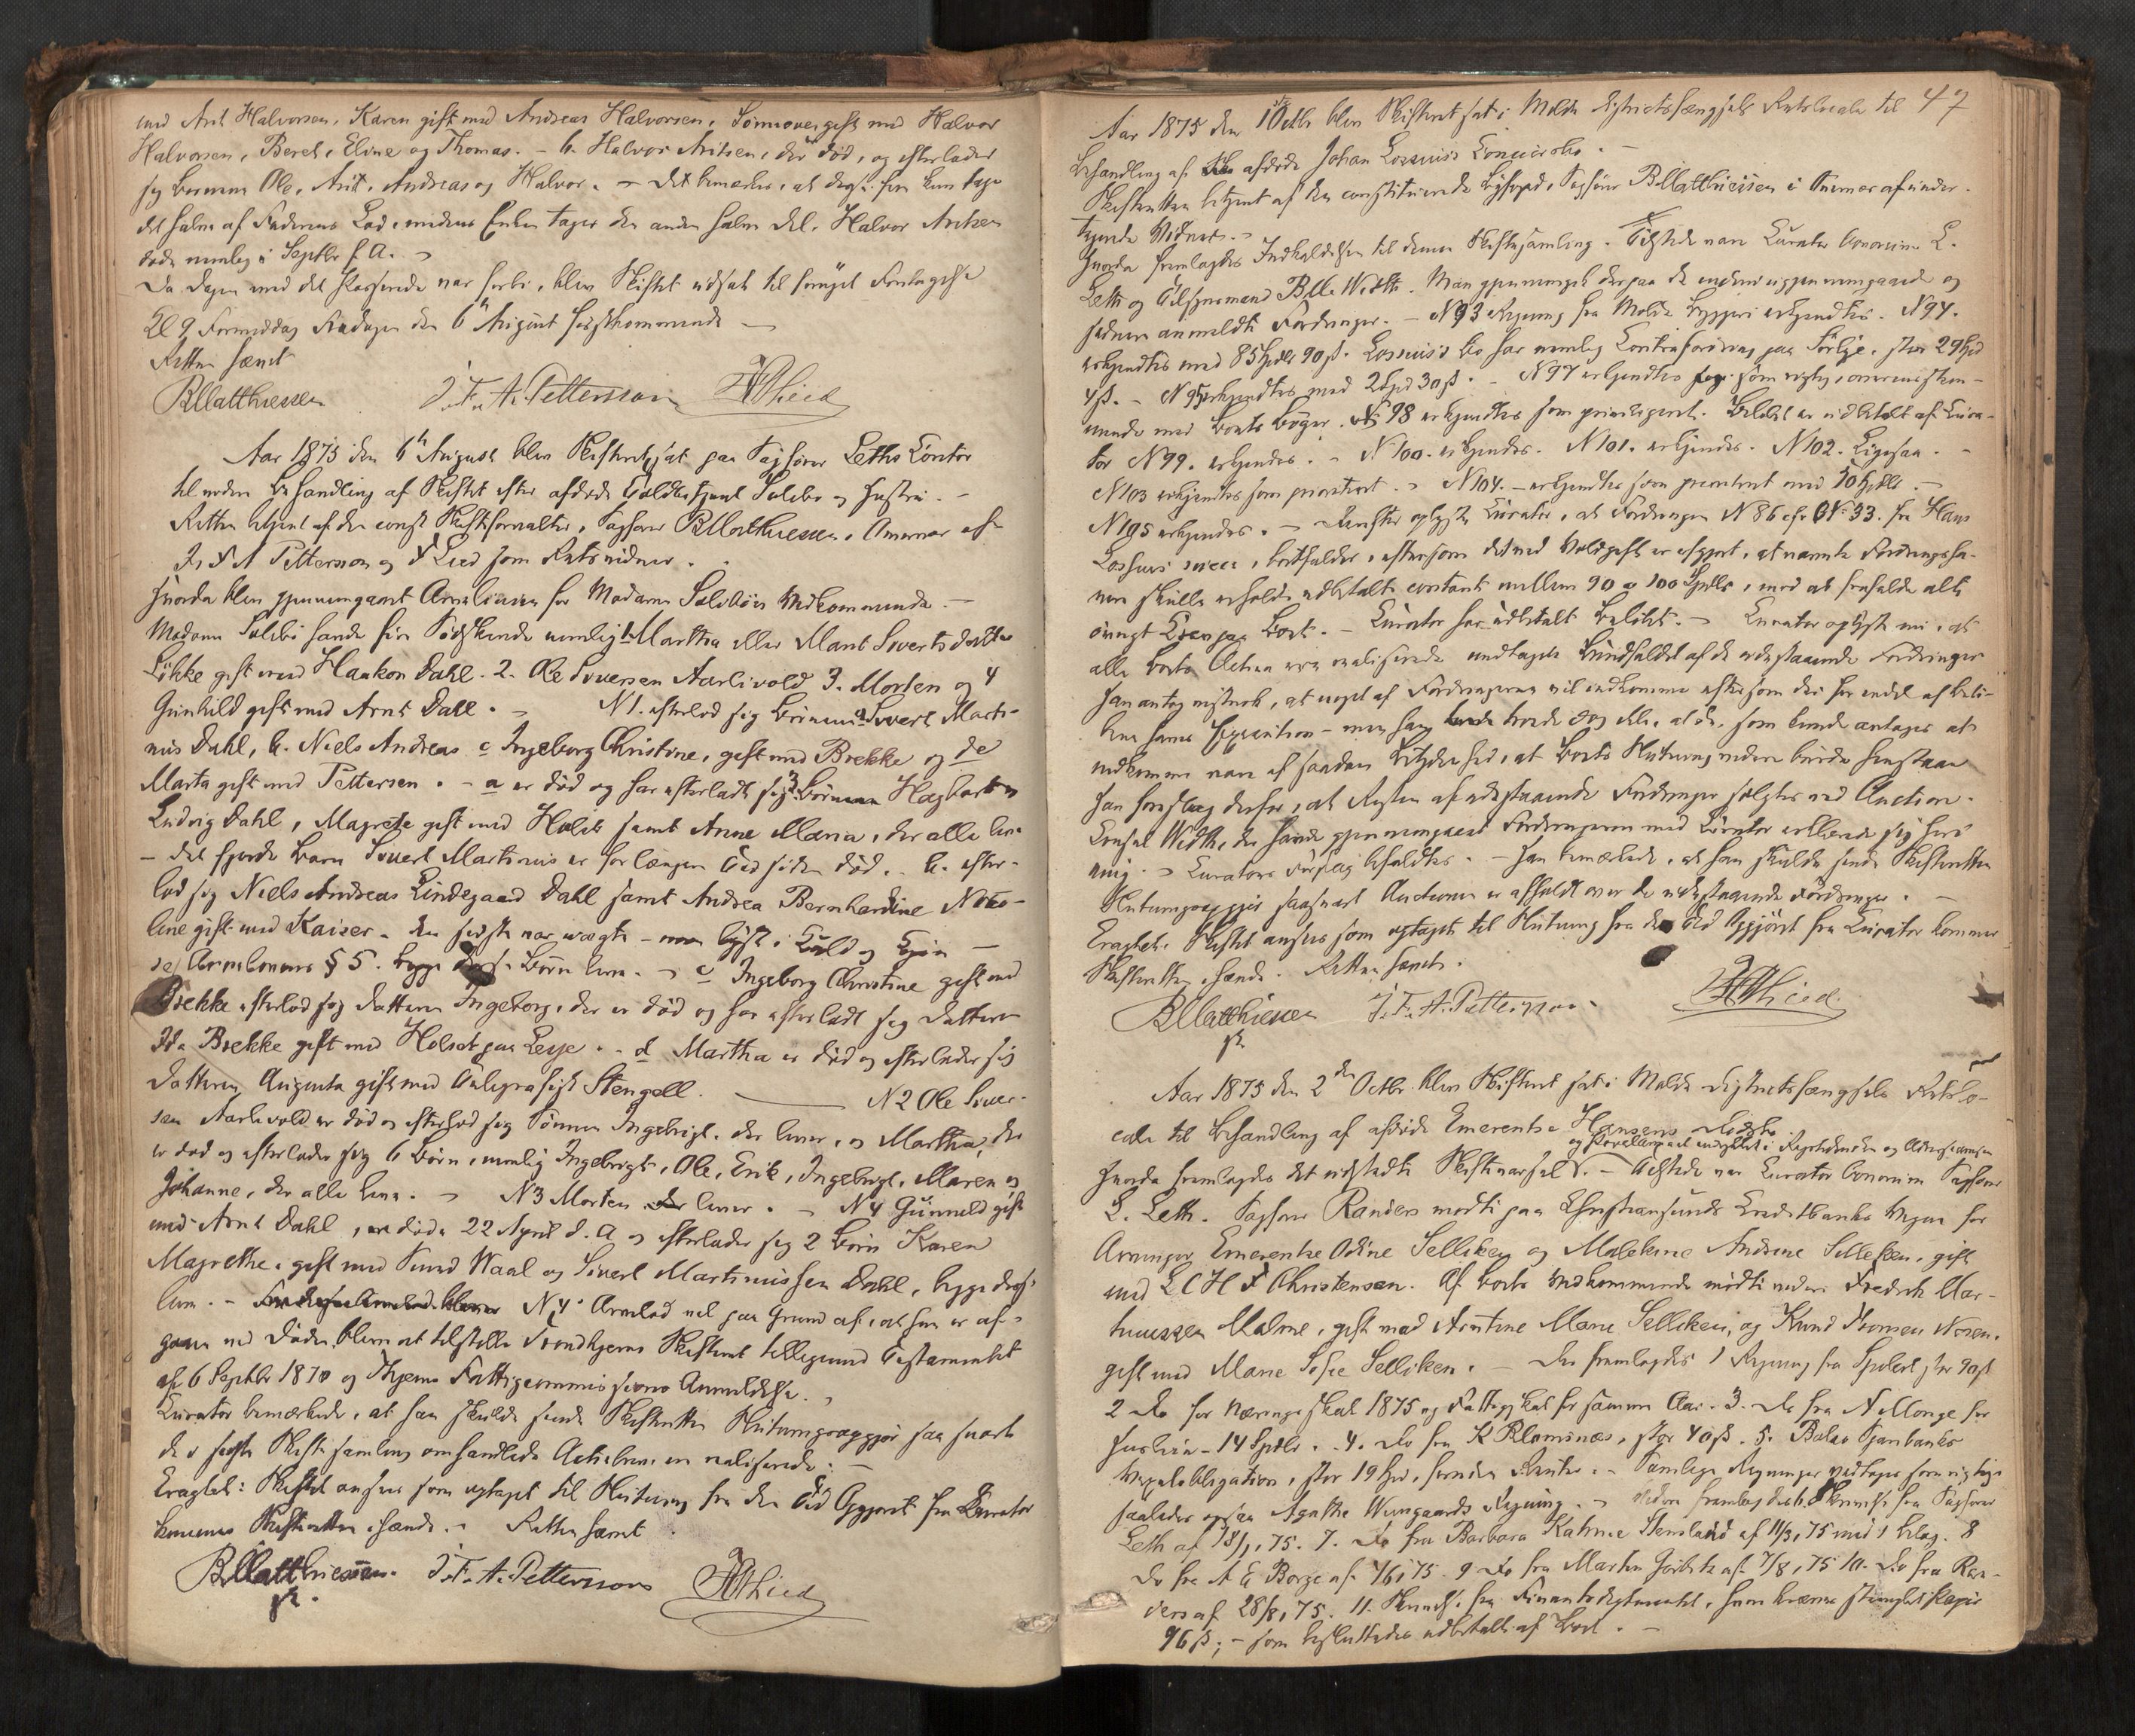 med Arnt Halvorsen, Karen gift med Andreas Halvorsen, gift med Halvor
Halvorsen, Beret, Eline og Thomas. - b. Halvor Arntsen, der er død, og efterlader
sig Børnene Ole, Arnt, Andreas og Halvor. - Det bemærkes, at disse kun tage
det halve af Faderens Lod, medens Enken tager den anden halve Del. Halvor Arntsen
døde nemlig i Septbr f. A. -
Da Dagen med det Passerede var forbi, blev Skiftet udsat til fornyet Foretagelse
Kl 9 Formiddag Fredagen den 6te August førstkommende -
Retten hævet
BMatthiessen J. F. A. Pettersson Lied
Aar 1875 den 6te August blev Skifteret sat paa Sagfører Leths Contor
til videre Behandling af Skiftet efter afdøde Toldbetjent Solebø og Hustru. -
Retten betjent af den const Skifteforvalter, Sagfører BMatthiessen, i Nærvær af
J. F. A Petterson og Lied som Retsvidner.
Hvorda blev gjennemgaaet Arvelinien for Madame Solebøs Vedkommende. -
Madame Solebø havde fire Sødskende nemlig 1. Martha eller Marit Sivertsdatter
Løkke gift med Haakon Dahl. 2. Ole Siversen Aarlivold 3. Morten og 4
Gunhild gift med Arnt Dahl. - N 1. efterlod sig Børnene a Sivert Marti-
nus Dahl, b. Niels Andreas c Ingeborg Christine, gift med Brekke og d
Marta gift med Pettersen. - a er død og har efterladt sig 3 Børnene Hagbart
Ludvig Dahl, Magrete gift med Holst samt Anne Maria, der alle leve
- det fjerde Barn Sivert Martinus er for længere Tid siden død. - b. efter-
lod sig Niels Andreas Lindegaard Dahl samt Andrea Bernhardine Niko-
line gift med Kaiser. den sidste var uægte - men lyst i Kuld og Kjøn -
Arvelovens § 5. begge disse Børn leve. - c Ingeborg Christine gift med
Brekke efterlod sig Datteren Ingeborg, der er død og har efterladt sig Datteren
Ida Brekke gift med Holset paa Lesje. - d Martha er død og efterlader sig
Datteren Augusta gift med Telegrafist Stengell. - N 2 Ole Siver-
sen Aarlivold er død og efterlod sig Sønnen Ingebrigt, der lever, og Martha, der
er død og efterlader sig 6 Børn, nemlig Ingebrigt, Ole, Erik, Ingebrigt, Maren og
Johanne, der alle leve. - N 3 Morten der lever. - N 4 Gunhild gift
med Arnt Dahl, døde 22 April d. A og efterlader sig 2 Børn Karen
Magrethe, gift med Sivert Martinussen Dahl, begge disse
leve. - N 4 Arvelod vil paa Grund af, at hun er af-
gaaet ved Døden blive at tilstille Trondhjems Skifteret tilligemed Testamentet
af 6 Septbr 1870 og Thjems Fattigcommissions Anmeldelse. -
Curator bemærkede, at han skulde sende Skifteretten Slutningsopgjør saa snart
de i sidste Skiftesamling omhandlede Activer ere realiserede. -
Eragtet: Skiftet ansees som optaget til Slutning fra den Tid Opgjøret fra Curator
kommer Skifteretten ihænde. - Retten hævet.
BMatthiessen. J. F. A. Pettersson Lied
47
Aar 1875 den 1 Octbr blev Skifteret sat i Molde Distriktsfængsels Retslocale til
Behandling af afdøde Johan Lossius's Concursbo. -
Skifteretten betjent af den constituerede Byfoged, Sagfører BMatthiessen i Nærvær af under-
tegnede Vidner. -
Hvorda fremlagdes Indkaldelsen til denne Skiftesamling. Tilstede vare Curator bonorum L.
Leth og Tilsynsmand P. Width. Man gjennemgik derpaa de endnu uigjennemgaaede og
senere anmeldte Fordringer. - N 93 Regning fra Molde Byggeri erkjendtes. N 94.
erkjendtes med 85 Spdlr 90 ß. Lossius's Bo har nemlig Contrafordring stor 29 Spd
4 ß. - N 95 erkjendtes med 2 Spd 30 ß. - N 97 erkjendtes som rigtig, overensstem-
mende med Boets Bøger. N 98 erkjendtes som privilegeret. Beløbet er udbetalt af Cura-
tor N 99. erkjendes. - N 100. erkjendes. N 101. erkjendes. N 102. Ligesaa. -
N 103 erkjendes som prioriteret. - N 104. - erkjendtes som prioriteret med 50 Spdlr. -
N 105 erkjendes. - Derefter oplyste Curator, at Fordringen N 86 cfr N 33. fra Hans
Lossius's bortfalder, eftersom det ved Voldgift er afgjort, at nævnte Fordringsha-
vere skulle erholde udbetalt contant mellem 90 a 100 Spdlr, mod at frafalde alt
øvrigt Krav paa Boet. - Curator har udbetalt Beløbet. - Curator oplyste nu, at
alle Boets Activa ere realiserede undtagen Bundfaldet af de udestaaende Fordringer
Han antog vistnok, at noget af Fordringerne vil indkomme eftersom der for endel af Belø-
bene haves Execution - men han troede dog ikke, at det, som kunde antages at
indkomme var af saadan Betydenhed, at Boets Slutning videre burde henstaae
Han foreslog derfor, at Resten af udestaaende Fordringer solgtes ved Auction.
Consul Width, der havde gjennemgaaet Fordringerne med Curator erklærede sig herfor
enig. - Curators Forslag befuldtes. - Han bemærkede, at han skulde sende Skifteretten
Slutningsopgjør saasnart Auctionen er afholdt over de udestaaende Fordringer. -
Eragtet: Skiftet ansees som optaget til Slutning fra den Tid Opgjøret fra Curator kommer
Skifteretten ihænde. Retten hævet.
BMatthiessen J. F. A. Pettersson. Lied.
Aar 1875 den 2den Octbr. blev Skifteret sat i Molde Distriktsfængsels Retslo-
cale til Behandling af afdøde Emerentse Hansens Dødsbo.
Hvorda fremlagdes det udstedte Skiftevarsel. - Tilstede var Curator bonorum Sagfører
L. Leth. Sagfører Randers mødte paa Christiansunds Creditbanks Vegne for
Arvinger Emerentse Odine Selliken og Malekine Andrine Selliken, gift
med L C H F Christensen. Af Boets Vedkommende mødte videre Fredrik Mar-
tinussen Malme, gift med Arntine Marie Selliken, og Knud Iversen Nesen.
gift med Marie Sofie Selliken. - Der fremlagdes 1 Regning fra stor 90 ß
2 do for Næringsskat 1875 og Fattigskat for samme Aar. 3. do fra N Monge for
Husleie - 14 Spdlr. - 4. do fra K Blomsnæs, stor 40 ß. 5. Bolsø Sparebanks
Vexelobligation, stor 19 Spd, foruden Renter. - Samtlige Regninger vedtages som rigtige
saaledes ogsaa Agathe Wungaards Regning. - Videre fremlagdes 6. Skrivelse fra Sagfører
Leth af 18/1, 75. 7. do fra Barbara Kahrine Stensland af 11/3, 75 med 1 Bilag. 8
do fra A E Borge af 4/6, 75. 9 do fra Marten af 7/8, 75 10. do fra Ran-
ders af 28/8, 75. 11. Skrivelse fra Finantsdepartementet, hvori kræves stemplet Papir
96 ß; - som besluttedes udbetalt af Boet. -